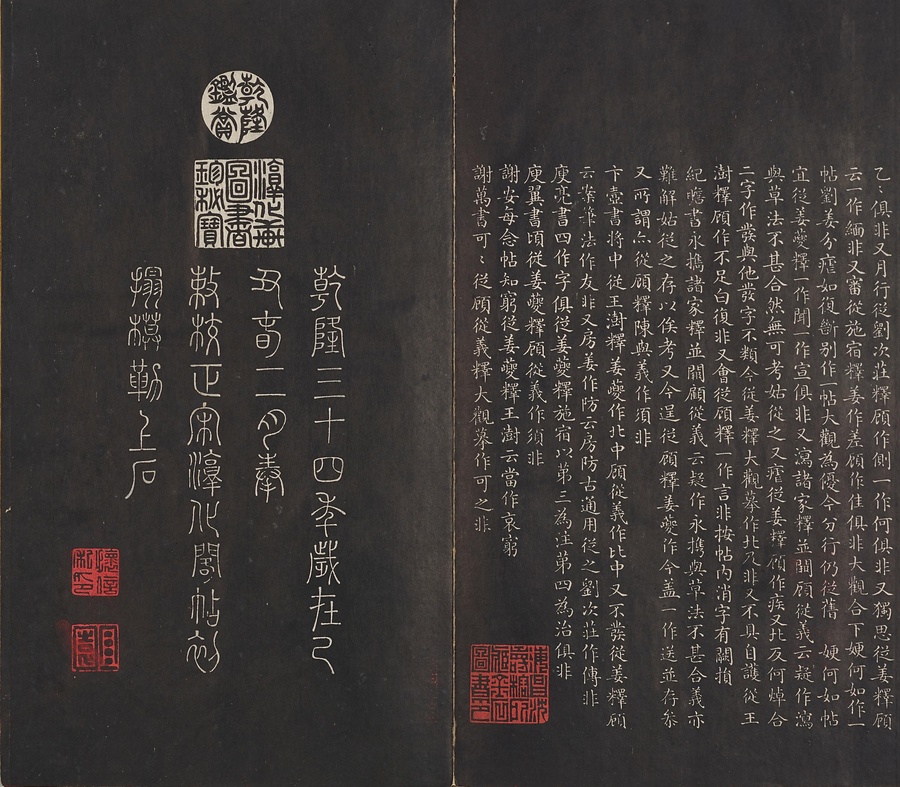 乙、俱非又月行從劉次莊釋顧作側一作何俱非又獨思從姜釋顧
云一作緬非又審從施宿釋姜作差顧作佳俱非大觀合下㛹何如作一
帖劉姜分瘧如復斷別作一帖大觀為優今分行仍從舊　㛹何如帖
宜從姜夔釋一作聞一作宣俱非又瀉諸家釋並闕顧從義云疑作瀉
與草法不甚合然無可考姑從之又瘧從姜釋顧作疾又北反何焯合
二字作發與他發字不類今從姜釋大觀摹作北及非又不具自護從王
澍釋顧作不足白復非又會從顧釋一作言非按帖內消字有闕損
紀瞻書永攜諸家釋並闕顧從義云疑作永攜與草法不甚合義亦
難解姑從之存以俟考又今遑從顧釋姜夔作今蓋一作送並存參
又所謂亦從顧釋陳與義作須非
卞壺書將中從王澍釋姜夔作北中顧從義作比中又不發從姜釋顧
云案法作友非又房姜作防云房防古通用從之劉次莊作傳非
庾亮書四作字俱從姜夔釋施宿以第三為注第四為治俱非
庾翼書頃從姜夔釋顧從義作須非
謝安每念帖知窮從姜夔釋王澍云當作哀窮
謝萬書可、從顧從義釋大觀摹作可之非
乾隆鑑賞
淳化軒圖書珍秘寶
乾隆三十四年歲在己
丑春二月奉
敕校正宋淳化閣帖刻
搨模勒上石